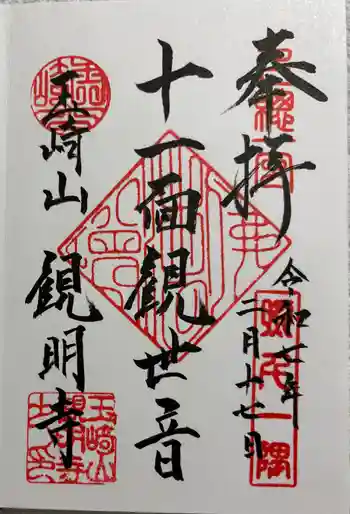 奉拝
令和 年
二月十七日
照千一隅
十一面観世音
玉崎山 観明寺
玉崎山
観明寺